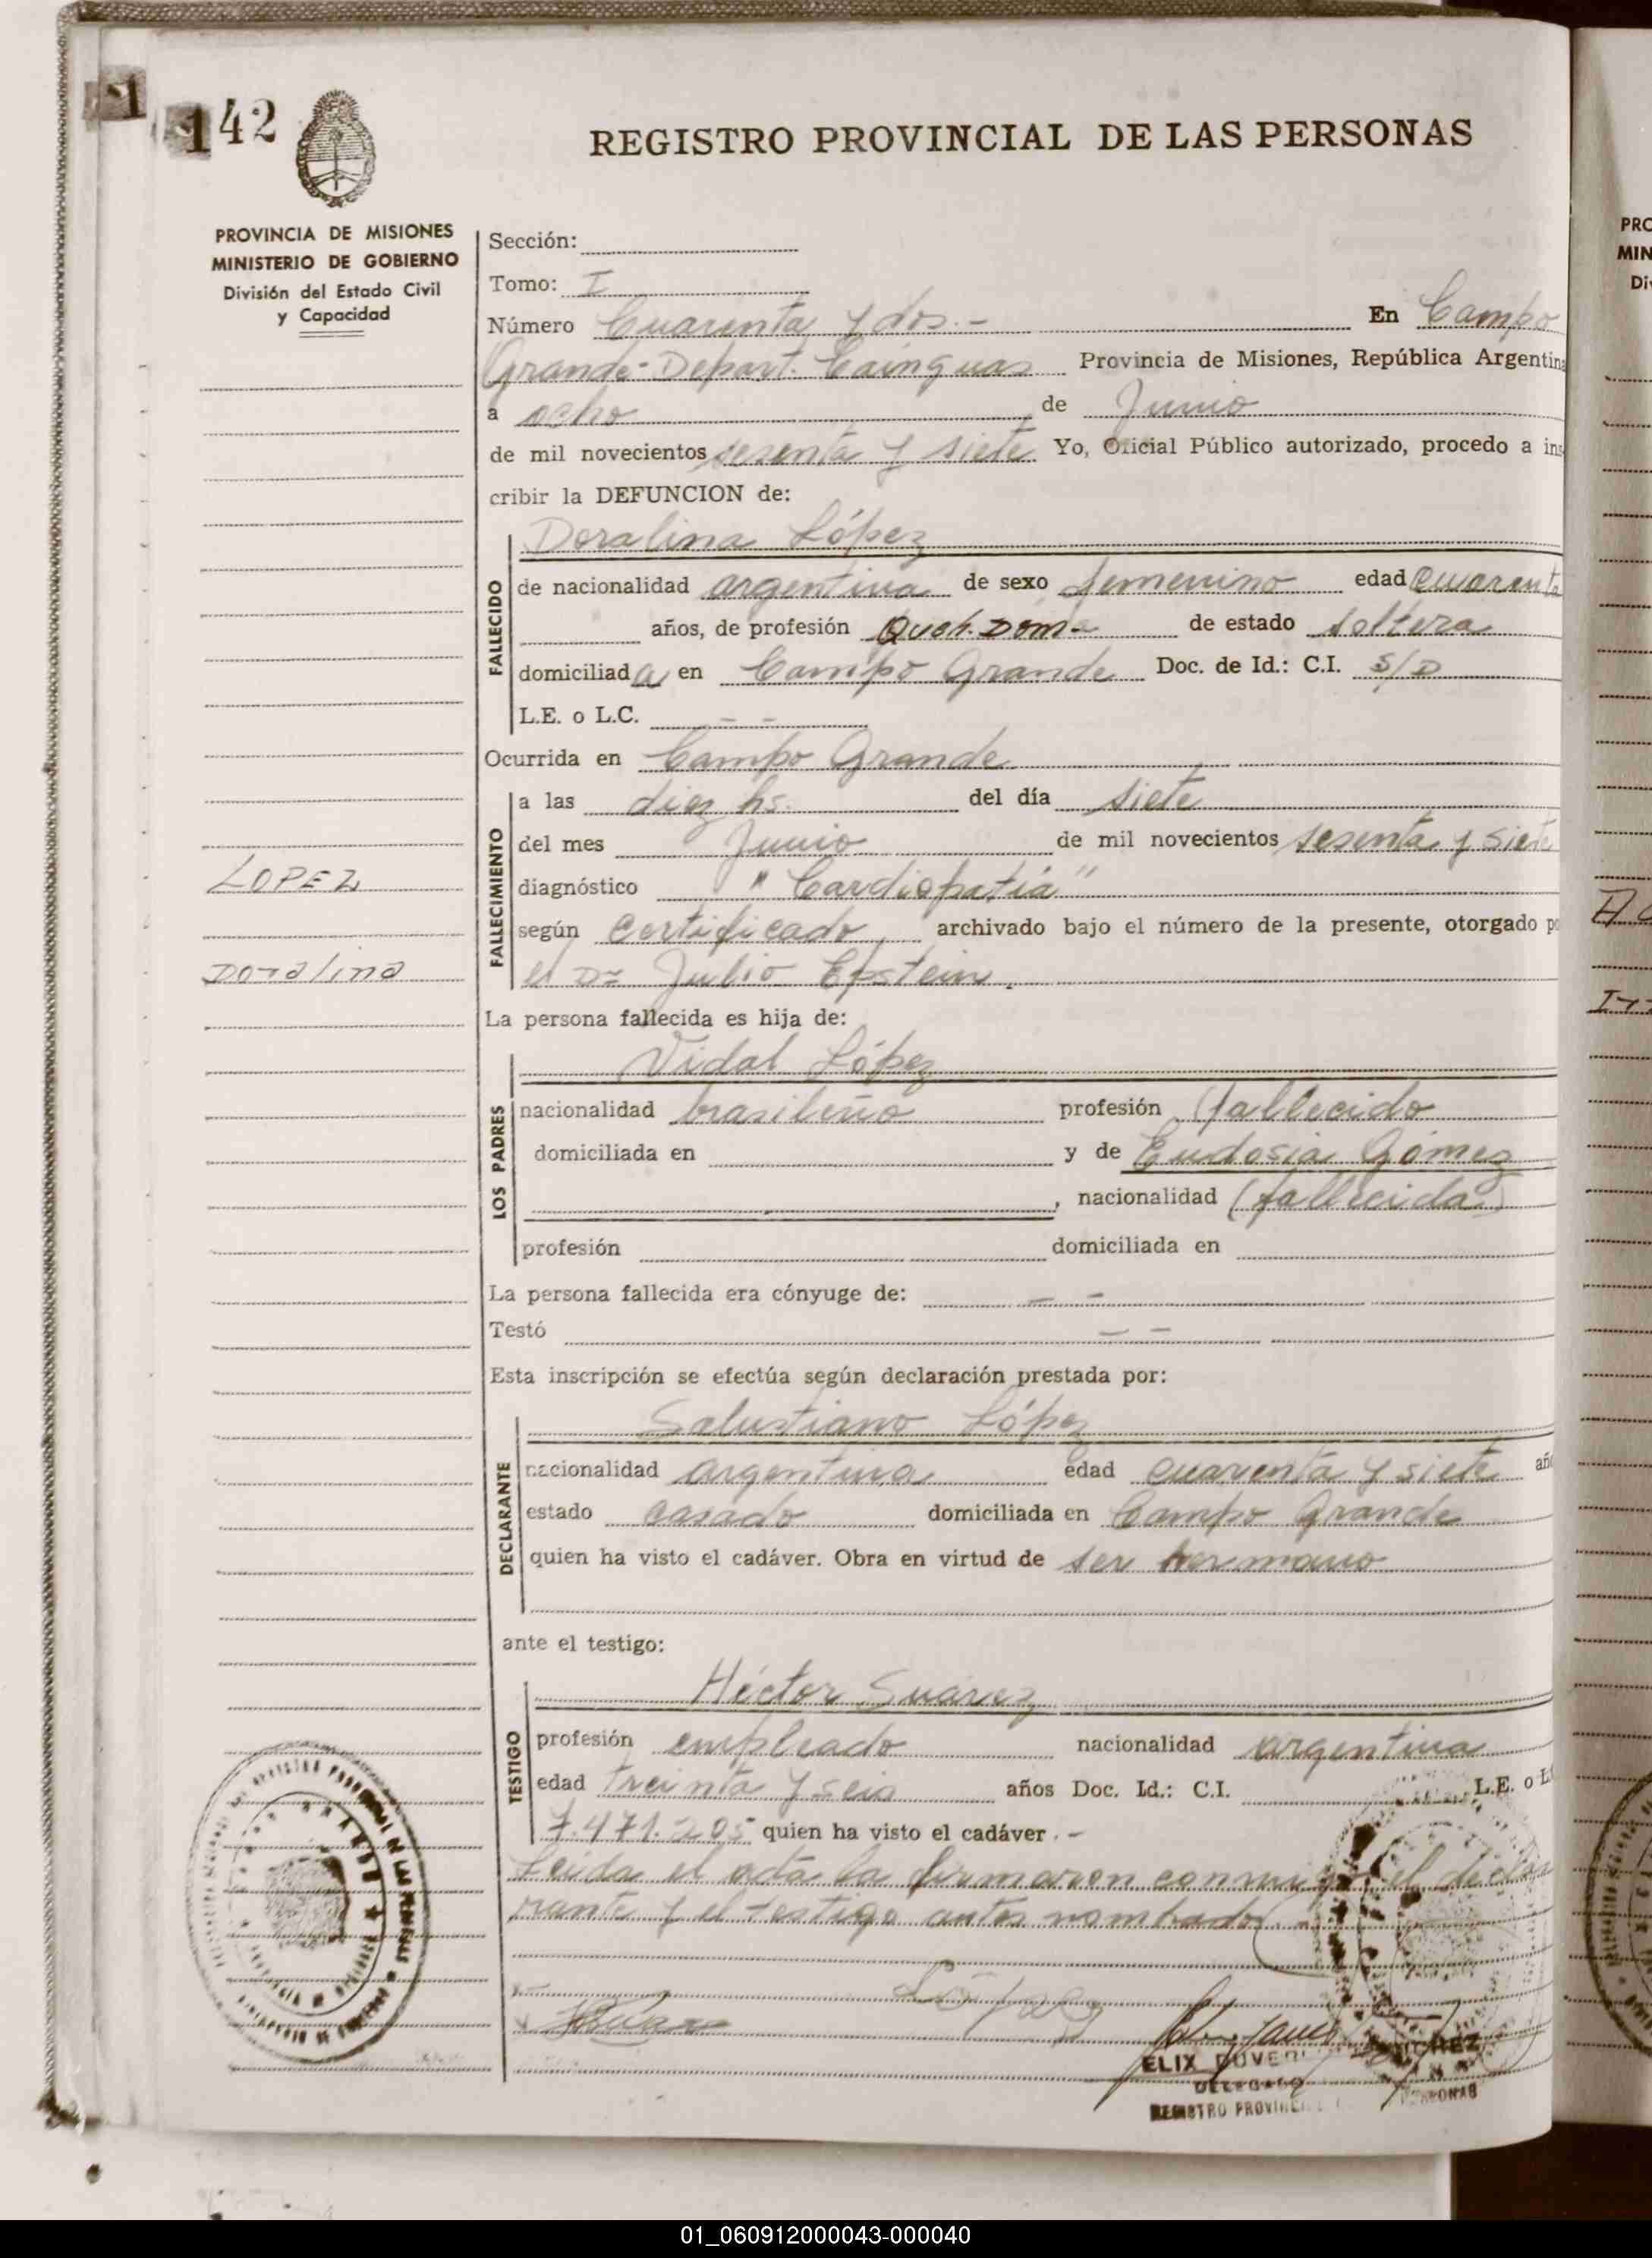 142
REGISTRO PROVINCIAL DE LAS PERSONAS
PROVINCIA DE MISIONES
MINISTERIO DE GOBIERNO
División del Estado Civil
y Capacidad
Sección:
Tomo: I
Número Cuarenta y dos.- En Campo
Grande-Depart. Cainguas Provincia de Misiones, República Argentina
a ocho de Junio
de mil novecientos sesenta y siete Yo, Oficial Público autorizado, procedo a ins
cribir la DEFUNCION de:
FALLECIDO
Doralina López
de nacionalidad argentina de sexo femenino edad cuarenta
años, de profesión Queh. Dom- de estado soltera
domiciliada en Campo Grande Doc. de Id.: C.I. S/D
L.E. o L.C. - -
Ocurrida en Campo Grande
FALLECIMIENTO
a las diez hs. del día siete
del mes Junio de mil novecientos sesenta y siete
diagnóstico "Cardiopatía"
según certificado archivado bajo el número de la presente, otorgado po
el Dr Julio Epstein.
LOPEZ
Doralina
La persona fallecida es hija de:
LOS PADRES
Vidal López
nacionalidad brasileño profesión (fallecido
domiciliada en y de Eudosia Gómez
, nacionalidad (fallecida)
profesión domiciliada en
La persona fallecida era cónyuge de: - -
Testó - -
Esta inscripción se efectúa según declaración prestada por:
DECLARANTE
Salustiano López
nacionalidad argentina edad cuarenta y siete año
estado casado domiciliada en Campo Grande
quien ha visto el cadáver. Obra en virtud de ser hermano
ante el testigo:
TESTIGO
Héctor Suárez
profesión empleado nacionalidad argentina
edad treinta y seis años Doc. Id.: C.I. L.E. o L
7.471.205 quien ha visto el cadáver.-
Leida el acta la firmaron conmigo el decla
rante y el testigo antes nombrado.-
López
DELEGADO
REGISTRO PROVINCI
PRO
MIN
Di
01_060912000043-000040